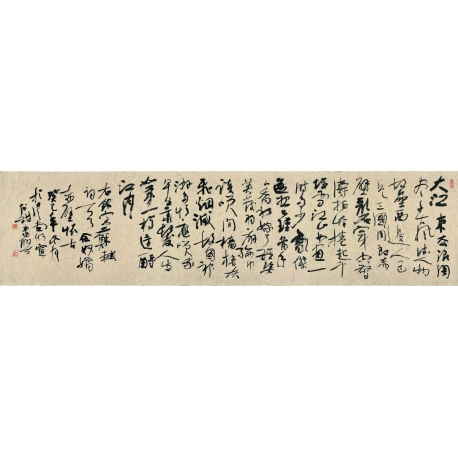 大江東去浪淘
尽千古風流人物
故壘西邊人道
是三國周郎赤
壁亂石穿空
濤拍岸捲起千
堆雪江山如畫一
時多少豪傑
遥想公瑾當年
小喬初嫁了雄姿
英發羽扇綸巾
談笑间檣櫓灰
飛烟滅故國神
游多情應笑我
早生華髮人生
如夢一樽還酹
江月
右錄蘇軾
詞念奴嬌
赤壁懷古
年